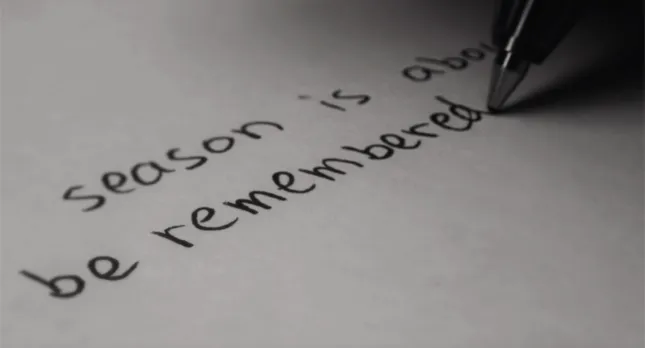 season is abo
be remembered